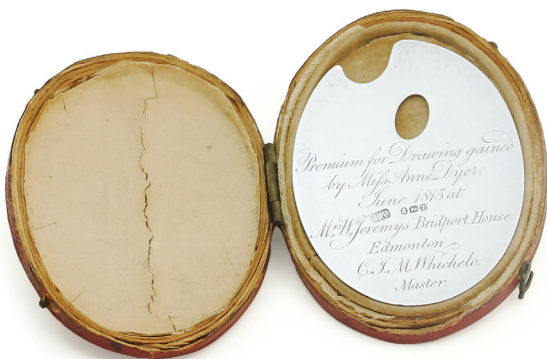 Premium for Drawing gained
by Miſs Anne Dyer,
June 1815 at
Mrs W. Jeremys' Bridport House
Edmonton
C. J. M. Whichelo,
Master.